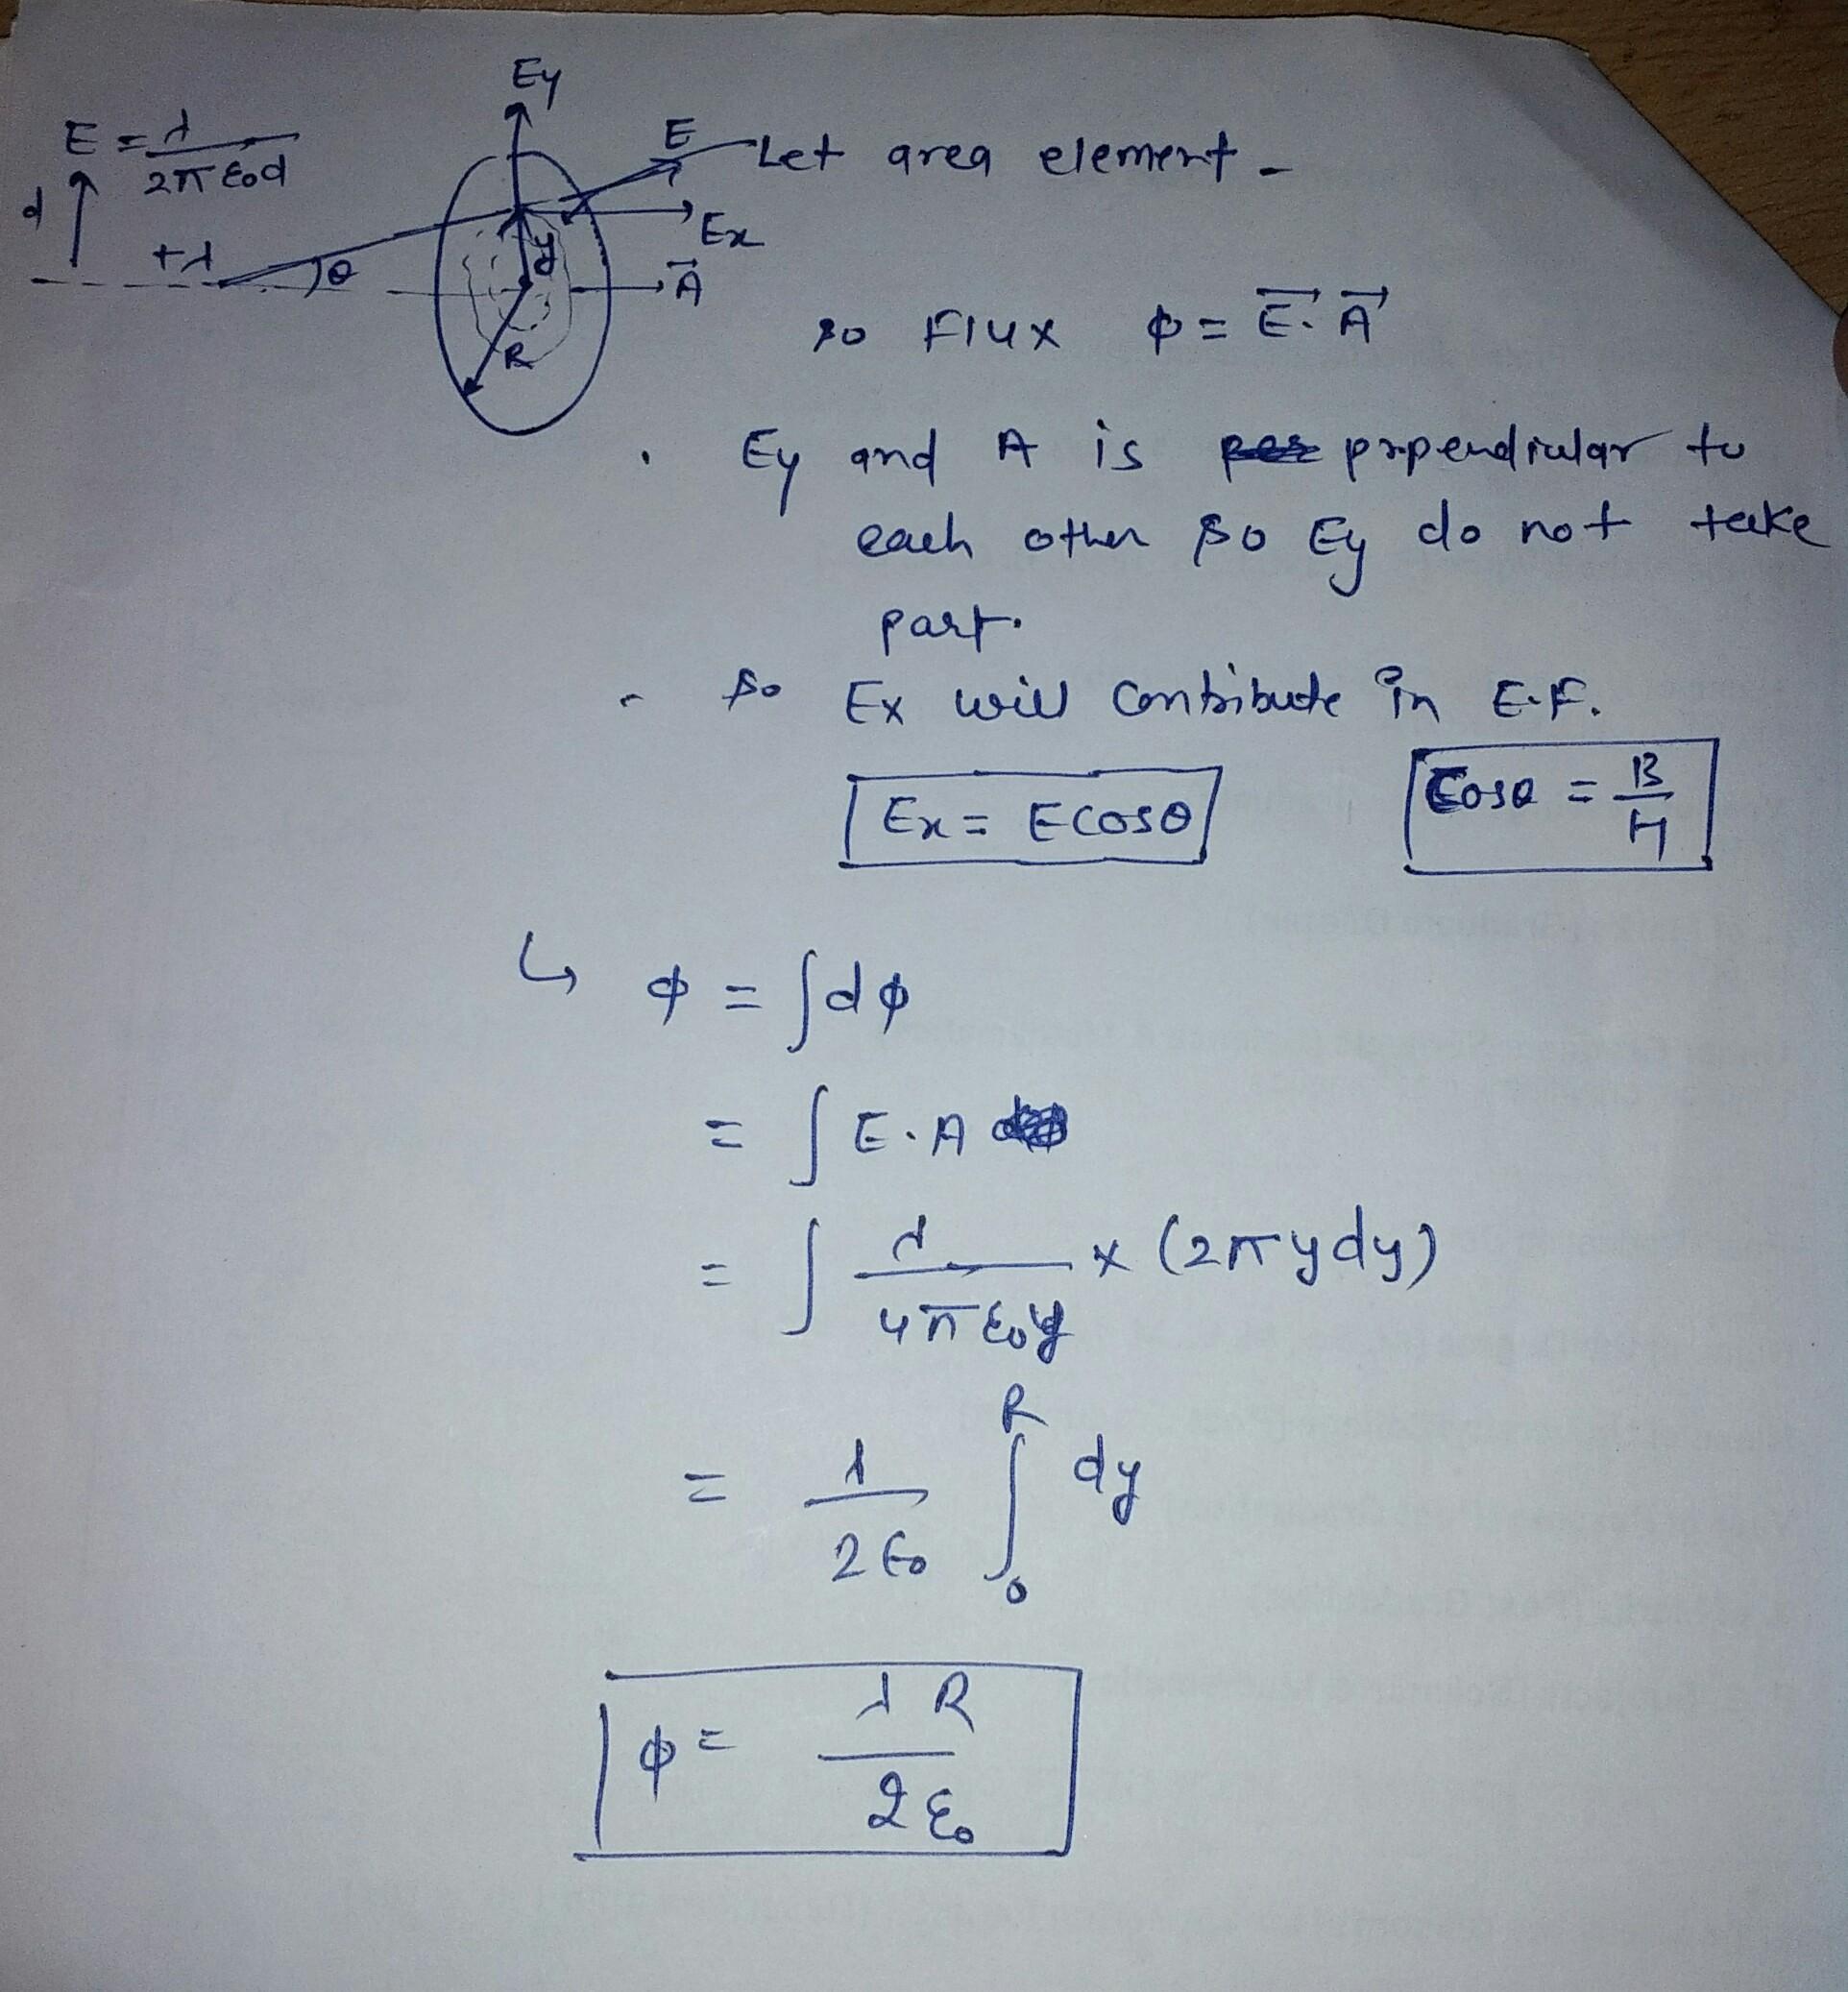 Ey
E = λ / 2π ε₀d
d
E
Let area element -
+λ
θ
y
Ex
A⃗
R
so Flux ϕ = E⃗. A⃗
. Ey and A is prpendiular to
each other so Ey do not take
part.
- so Ex will contribute in E.F.
Ex = E cosθ
Cosθ = B / H
↳ ϕ = ∫dϕ
= ∫ E. A
= ∫ λ / 4π ε₀y × (2πydy)
= λ / 2 ε₀ ∫₀ᴿ dy
ϕ = λ R / 2 ε₀